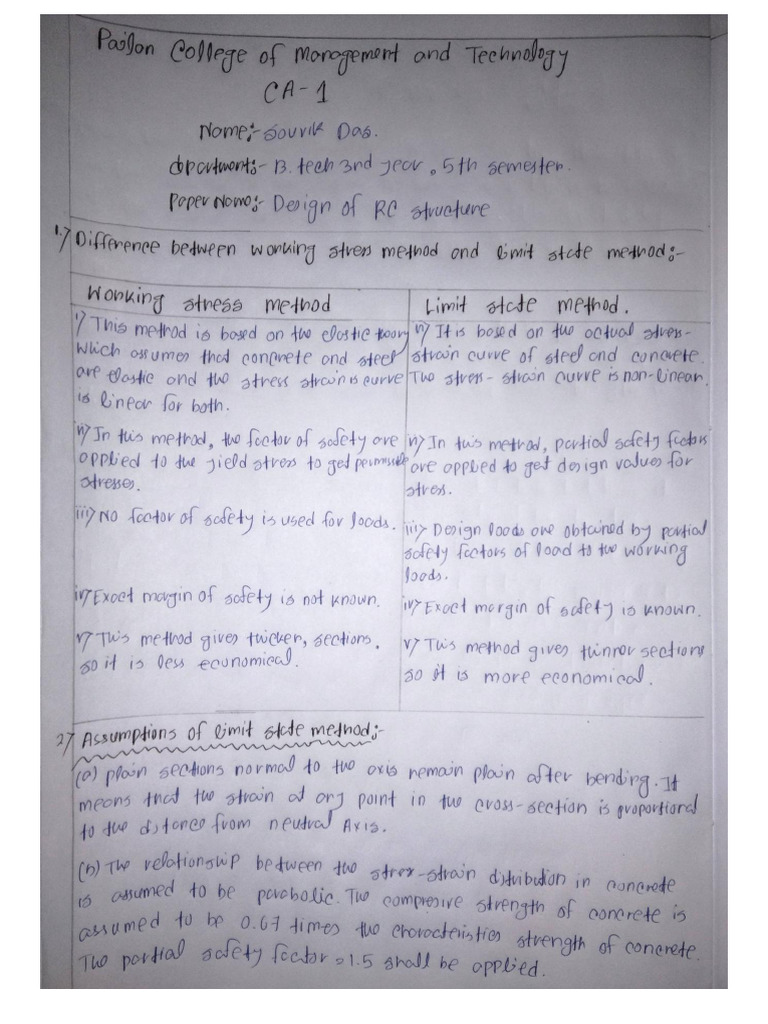 Pailan College of Management and Technology
CA-1
Name:- Souvik Das.
Department:- B. tech 3rd year, 5th semester.
Paper Name:- Design of RC structure
1.) Difference between working stress method and limit state method:-
Working stress method
i) This method is based on the elastic theory
which assumes that concrete and steel
are elastic and the stress strain is curve
is linear for both.
ii) In this method, the factor of safety are
applied to the yield stress to get permissible
stresses.
iii) No factor of safety is used for loads.
iv) Exact margin of safety is not known.
v) This method gives thicker, sections.
so it is less economical.
Limit state method.
i) It is based on the actual stress-
strain curve of steel and concrete.
The stress-strain curve is non-linear.
ii) In this method, partial safety factors
are applied to get design values for
stress.
iii) Design loads are obtained by partial
safety factors of load to the working
loads.
iv) Exact margin of safety is known.
v) This method gives thinner sections
so it is more economical.
2) Assumptions of limit state method:-
(a) plain sections normal to the axis remain plain after bending. It
means that the strain at any point in the cross-section is proportional
to the distance from neutral Axis.
(b) The relationship between the stress-strain distribution in concrete
is assumed to be parabolic. The compresive strength of concrete is
assumed to be 0.67 times the characteristics strength of concrete.
The partial safety factor = 1.5 shall be applied.